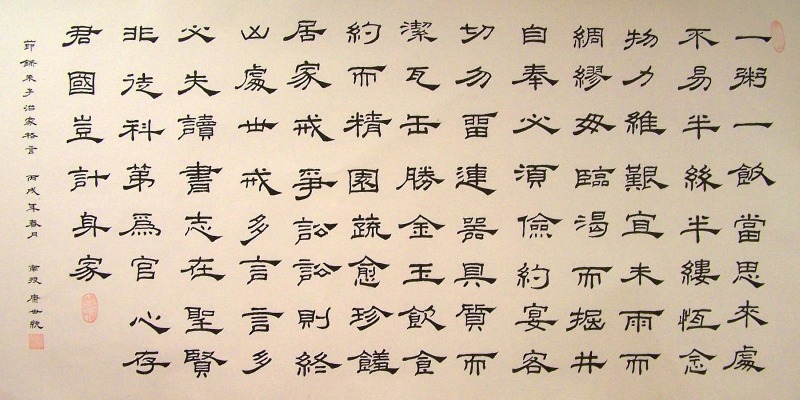 一粥一飲當思來處
不易半絲半縷恆念
物力維艱宜未雨而
綢繆毋臨渴而掘井
自奉必須儉約宴客
切勿留連器具質而
潔瓦缶勝金玉飲食
約而精園蔬愈珍饈
居家戒爭訟訟則終
凶處世戒多言言多
必失讀書志在聖賢
非徒科第爲官心存
君國豈計身家
節錄朱子治家格言 丙戌年春月 南投